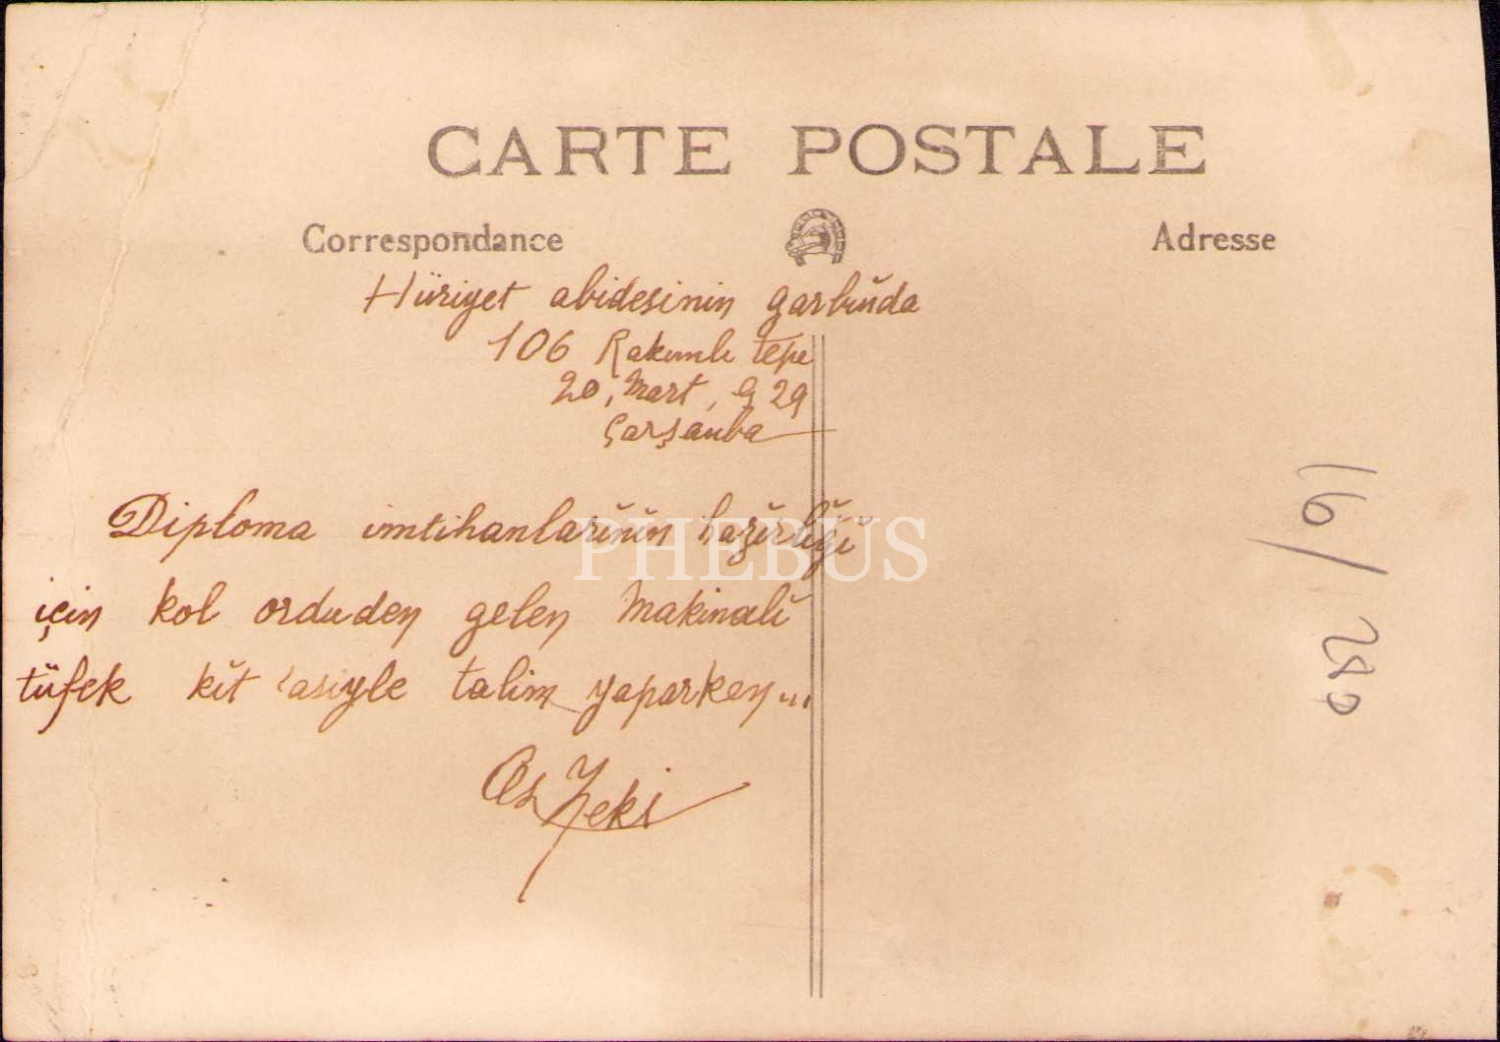 CARTE POSTALE
Correspondance
Adresse
Hüriyet abidesinin garbında
106 Rakımlı tepe
20, Mart, 929
Çarşanba
Diploma imtihanlarının hazırlığı
için kol orduden gelen Makinalı
tüfek kıt'asiyle talim yaparken...
Zeki
PHEBUS
16/